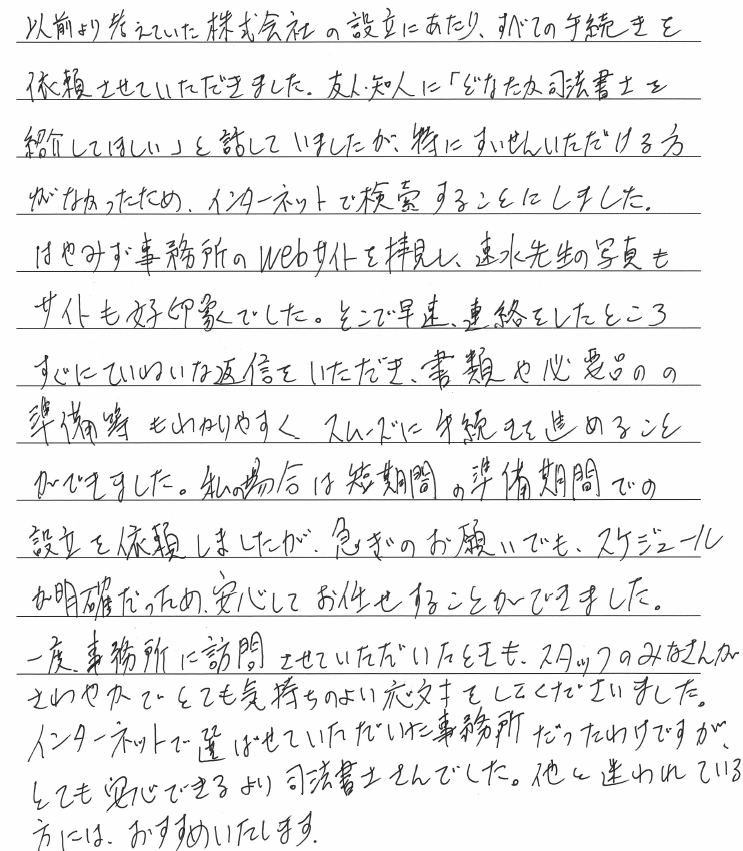 以前より考えていた株式会社の設立にあたり、すべての手続きを
依頼させていただきました。友人・知人に「どなたか司法書士を
紹介してほしい」と話していましたが、特にすいせんいただける方
がなかったため、インターネットで検索することにしました。
はやみず事務所のWebサイトを拝見し、速水先生の写真も
サイトも好印象でした。そこで早速、連絡をしたところ
すぐにていねいな返信をいただき、書類や必要品の
準備等もわかりやすく、スムーズに手続きを進めること
ができました。私の場合は短期間の準備期間での
設立を依頼しましたが、急ぎのお願いでも、スケジュール
が明確だっため、安心してお任せすることができました。
一度、事務所に訪問させていただいたときも、スタッフのみなさんが
さわやかでとても気持ちのよい応対をしてくださいました。
インターネットで選ばせていただいた事務所だったわけですが、
とても安心できるより司法書士さんでした。他と迷われている
方には、おすすめいたします。